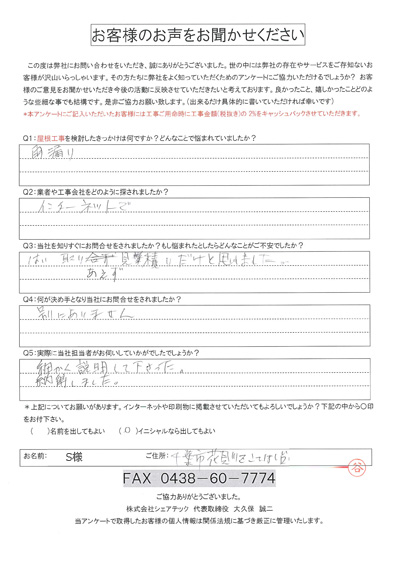 お客様のお声をお聞かせください
この度は弊社にお問い合わせをいただき、誠にありがとうございました。世の中には弊社の存在やサービスをご存知ないお
客様が沢山いらっしゃいます。その方たちに弊社をよく知っていただくためのアンケートにご協力いただけるでしょうか？ お客
様のご意見をお聞かせいただき今後の活動に反映させていただきたいと考えております。良かったこと、嬉しかったことどのよ
うな些細な事でも結構です。是非ご協力お願い致します。（出来るだけ具体的に書いていただければ幸いです）
*本アンケートにご記入いただいたお客様には工事ご用命時に工事金額(税抜き)の 2%をキャッシュバックさせていただきます。
Q1:屋根工事を検討したきっかけは何ですか？どんなことで悩まれていましたか？
雨漏り
Q2:業者や工事会社をどのように探されましたか？
インターネットで
Q3:当社を知りすぐにお問合せをされましたか？もし悩まれたとしたらどんなことがご不安でしたか？
はい 取り 見積りだけと思いました。
あえず
Q4:何が決め手となり当社にお問合せをされましたか？
別にありません
Q5:実際に当社担当者がお伺いしていかがでしたでしょうか？
細かく説明して下さった。
納得しました。
＊上記についてお願いがあります。インターネットや印刷物に掲載させていただいてもよろしいでしょうか？下記の中から〇印
をお付下さい。
（　）名前を出してもよい （〇）イニシャルなら出してもよい
お名前: S様 ご住所: 千葉市花見川区こてはし台
谷
FAX 0438-60-7774
ご協力ありがとうございました。
株式会社シェアテック 代表取締役 大久保 誠二
当アンケートで取得したお客様の個人情報は関係法規に基づき厳正に管理いたします。